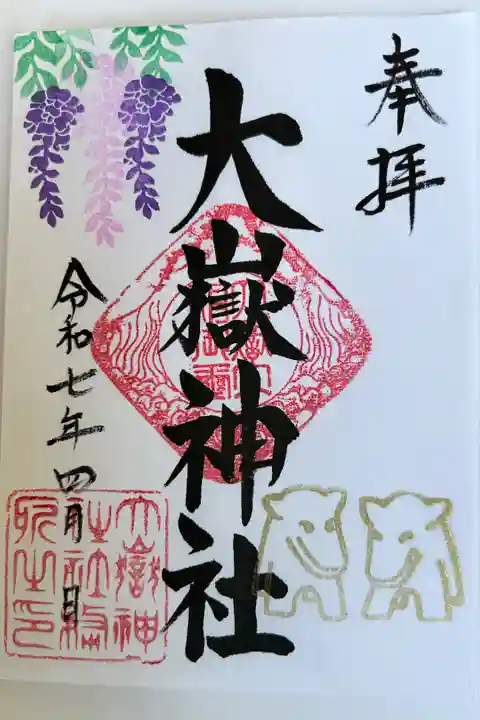 奉拝
大嶽神社
令和七年四月 日
大嶽神
社社務
所之印